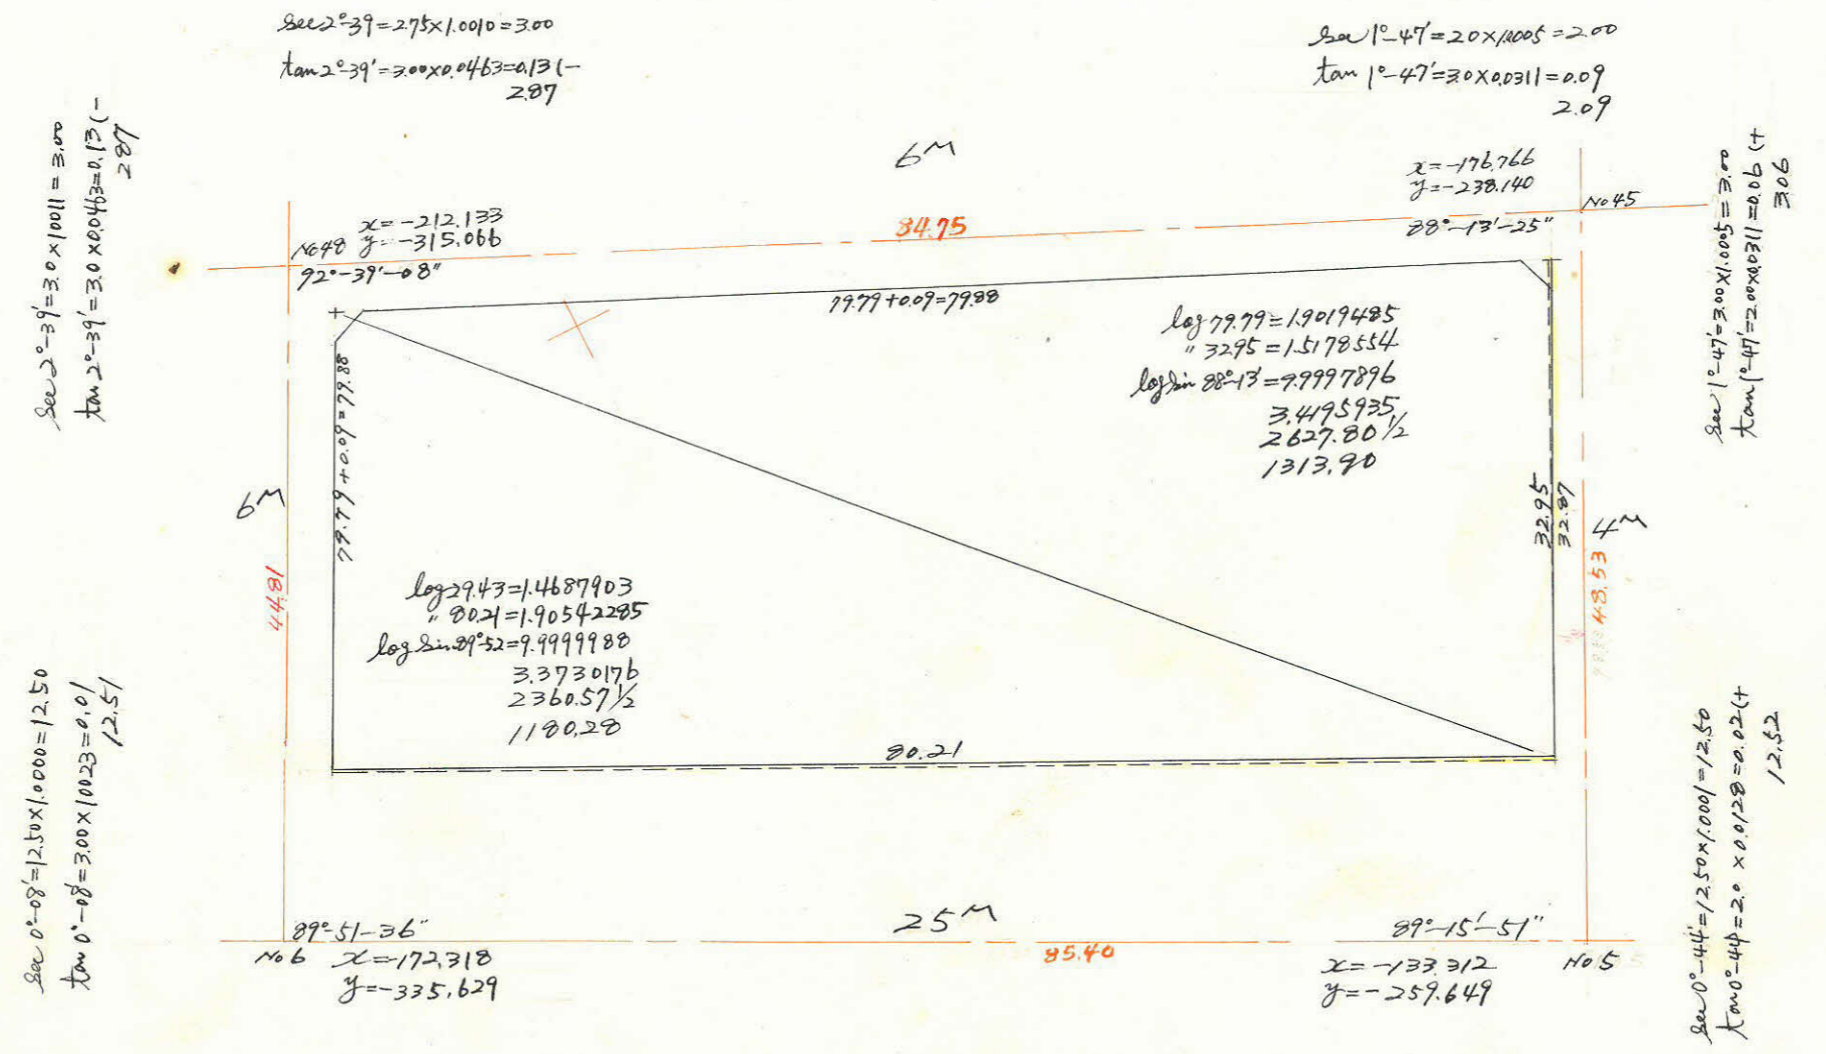 sec2°-39=2.75×1.0010=3.00
tan2°-39'=3.00×0.0463=0.13(-
2.87
sec1°-47'=2.0×1.0005=2.00
tan1°-47'=3.0×0.0311=0.09
2.09
sec2°-39'=3.0×1.0011=3.00
tan2°-39'=3.0×0.0463=0.13(-
287
6M
x=-176.766
y=-238.140
No45
88°-13'-25"
sec1°-47'=3.00×1.005=3.00
tan1°-47'=2.00×0.0311=0.06(+
306
x=-212.133
No48 y=-315.066
92°-39'-08"
84.75
79.79+0.09=79.88
log79.79=1.9019485
" 32.95=1.5178554
logsin 88°-13'=9.9997896
3.4195935
2627.80 1/2
1313.90
79.79+0.09=79.88
6M
44.81
32.95
32.87
4M
48.53
log29.43=1.4687903
" 80.21=1.90542285
log sin89°-52=9.9999988
3.3730176
2360.57 1/2
1180.28
80.21
sec0°-08'=12.50×1.0000=12.50
tan0°-08'=3.00×10023=0.01
12.51
sec0°-44'=12.50×1.0001=12.50
tan0°-44'=2.0×0.0128=0.02(+
12.52
89°-51-36"
25M
89°-15'-51"
No6
x=-172.318
y=-335.629
85.40
x=-133.312
y=-259.649
No5